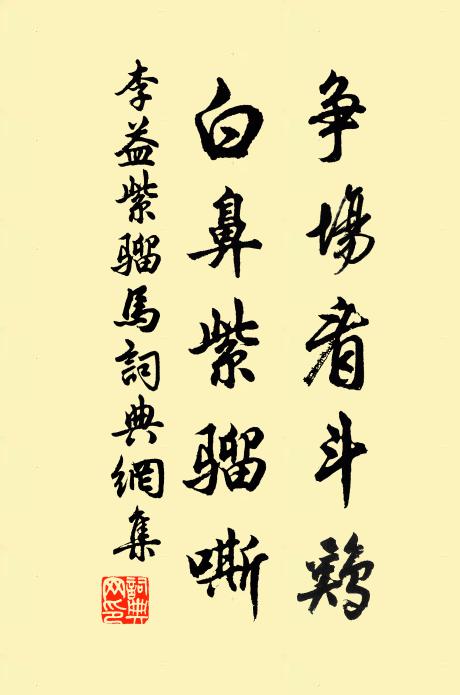 争場看斗鷄
白鼻紫骝嘶
李益紫骝馬詞典網集
詞典网印